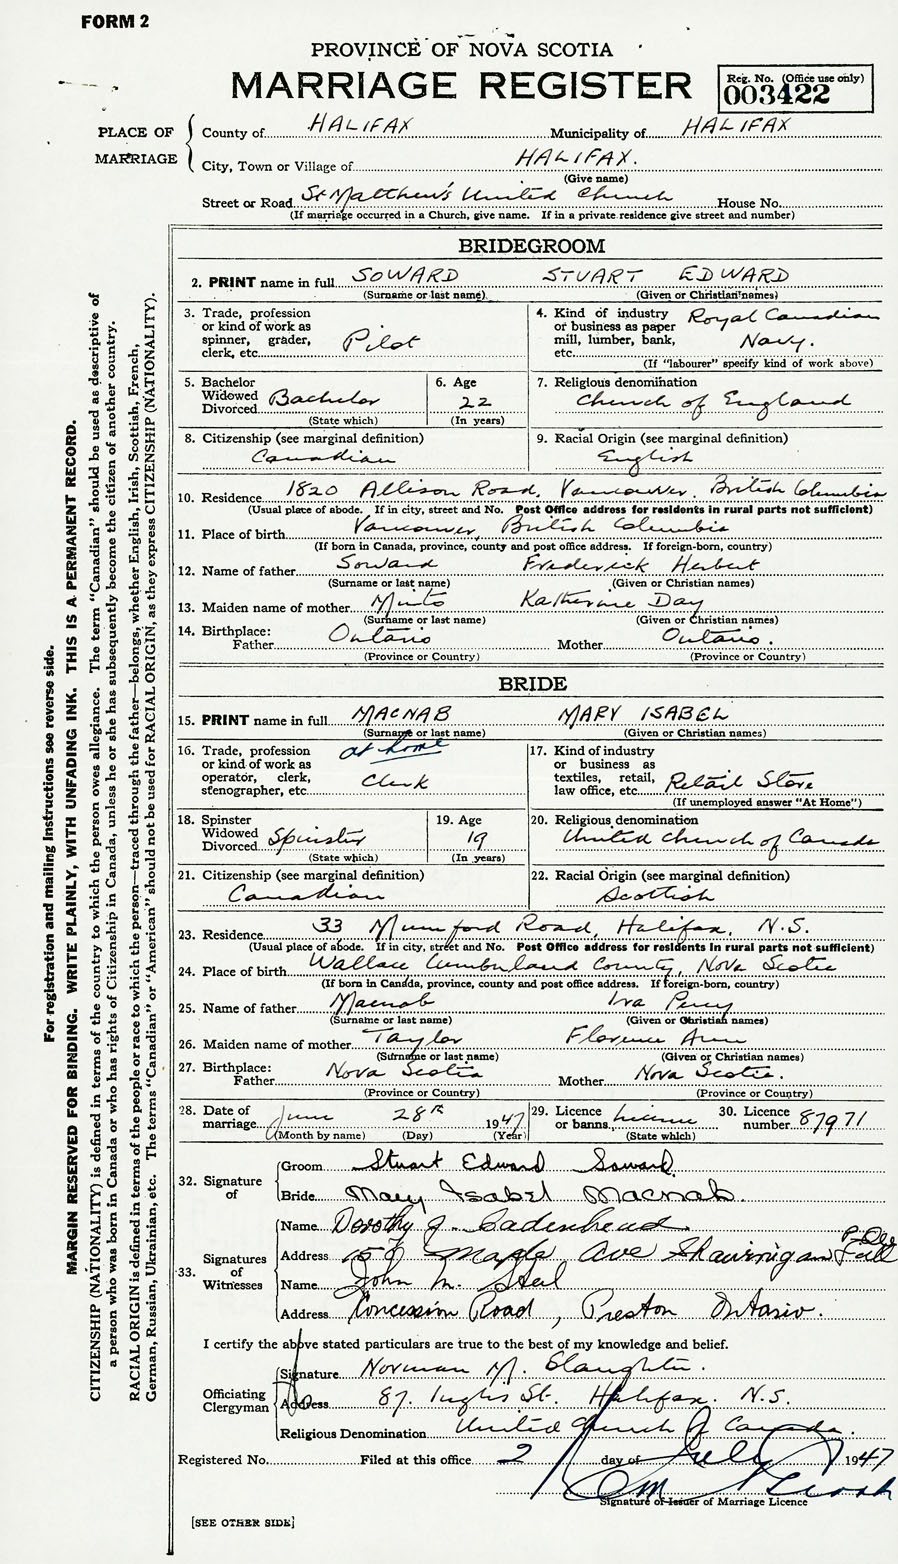 FORM 2
PROVINCE OF NOVA SCOTIA
MARRIAGE REGISTER
Reg. No. (Office use only)
003422
PLACE OF MARRIAGE
County of HALIFAX Municipality of HALIFAX
City, Town or Village of HALIFAX.
(Give name)
Street or Road St Matthew's United Church House No.
(If marriage occurred in a Church, give name. If in a private residence give street and number)
BRIDEGROOM
2. PRINT name in full SOWARD STUART EDWARD
(Surname or last name) (Given or Christian names)
3. Trade, profession or kind of work as spinner, grader, clerk, etc. Pilot
4. Kind of industry or business as paper mill, lumber, bank, etc. Royal Canadian Navy.
(If "labourer" specify kind of work above)
5. Bachelor Widowed Divorced Bachelor
(State which)
6. Age 22
(In years)
7. Religious denomination
Church of England
8. Citizenship (see marginal definition)
Canadian
9. Racial Origin (see marginal definition)
English
10. Residence 1820 Allison Road, Vancouver. British Columbia
(Usual place of abode. If in city, street and No. Post Office address for residents in rural parts not sufficient)
11. Place of birth Vancouver, British Columbia
(If born in Canada, province, county and post office address. If foreign-born, country)
12. Name of father Soward Frederick Herbert
(Surname or last name) (Given or Christian names)
13. Maiden name of mother Minto Katherine Day
(Surname or last name) (Given or Christian names)
14. Birthplace: Father Ontario Mother Ontario.
(Province or Country) (Province or Country)
BRIDE
15. PRINT name in full MACNAB MARY ISABEL
(Surname or last name) (Given or Christian names)
16. Trade, profession or kind of work as operator, clerk, stenographer, etc. at home Clerk
17. Kind of industry or business as textiles, retail, law office, etc. Retail Store
(If unemployed answer "At Home")
18. Spinster Widowed Divorced Spinster
(State which)
19. Age 19
(In years)
20. Religious denomination
United Church of Canada
21. Citizenship (see marginal definition)
Canadian
22. Racial Origin (see marginal definition)
Scottish
23. Residence 33 Mumford Road, Halifax, N.S.
(Usual place of abode. If in city, street and No. Post Office address for residents in rural parts not sufficient)
24. Place of birth Wallace Cumberland County, Nova Scotia
(If born in Canada, province, county and post office address. If foreign-born, country)
25. Name of father Macnab Ira Percy
(Surname or last name) (Given or Christian names)
26. Maiden name of mother Taylor Florence Ann
(Surname or last name) (Given or Christian names)
27. Birthplace: Father Nova Scotia Mother Nova Scotia.
(Province or Country) (Province or Country)
28. Date of marriage June 28th 1947
(Month by name) (Day) (Year)
29. Licence or banns License
(State which)
30. Licence number 87971
32. Signature of
Groom Stuart Edward Soward.
Bride Mary Isabel Macnab.
33. Signatures of Witnesses
Name Dorothy J. Cadenhead.
Address Maple Ave Shawinigan Falls
Name John M. Steil
Address Concession Road, Preston Ontario.
I certify the above stated particulars are true to the best of my knowledge and belief.
Officiating Clergyman
Signature Norman M. Slaughter.
Address 87. Inglis St. Halifax. N.S.
Religious Denomination United Church of Canada.
Registered No. Filed at this office 2 day of July 1947
Signature of Issuer of Marriage Licence
[SEE OTHER SIDE]
For registration and mailing instructions see reverse side.
MARGIN RESERVED FOR BINDING. WRITE PLAINLY, WITH UNFADING INK. THIS IS A PERMANENT RECORD.
CITIZENSHIP (NATIONALITY) is defined in terms of the country to which the person owes allegiance. The term "Canadian" should be used as descriptive of
a person who was born in Canada or who has rights of Citizenship in Canada, unless he or she has subsequently become the citizen of another country.
RACIAL ORIGIN is defined in terms of the people or race to which the person—traced through the father—belongs, whether English, Irish, Scottish, French,
German, Russian, Ukrainian, etc. The terms "Canadian" or "American" should not be used for RACIAL ORIGIN, as they express CITIZENSHIP (NATIONALITY).